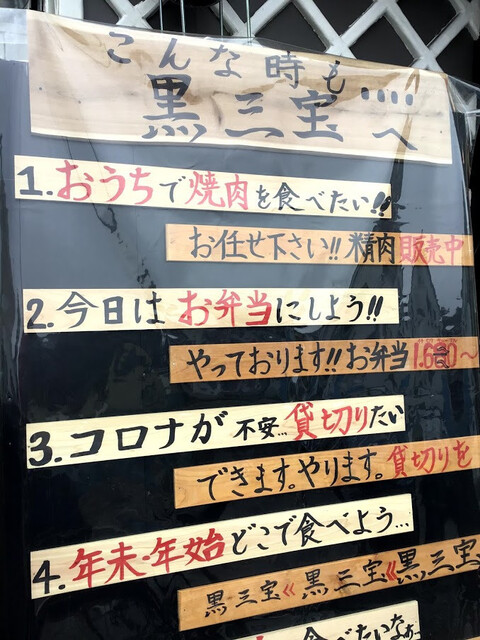 こんな時も‥‥
黒三宝へ
1.おうちで焼肉を食べたい!!
お任せ下さい!!精肉販売中
2.今日はお弁当にしよう!!
やっております!!お弁当
3.コロナが不安…貸切りたい
できます。やります。貸切りを
4.年末・年始どこで食べよう…
黒三宝《黒三宝《黒三宝
食べたいなぁ